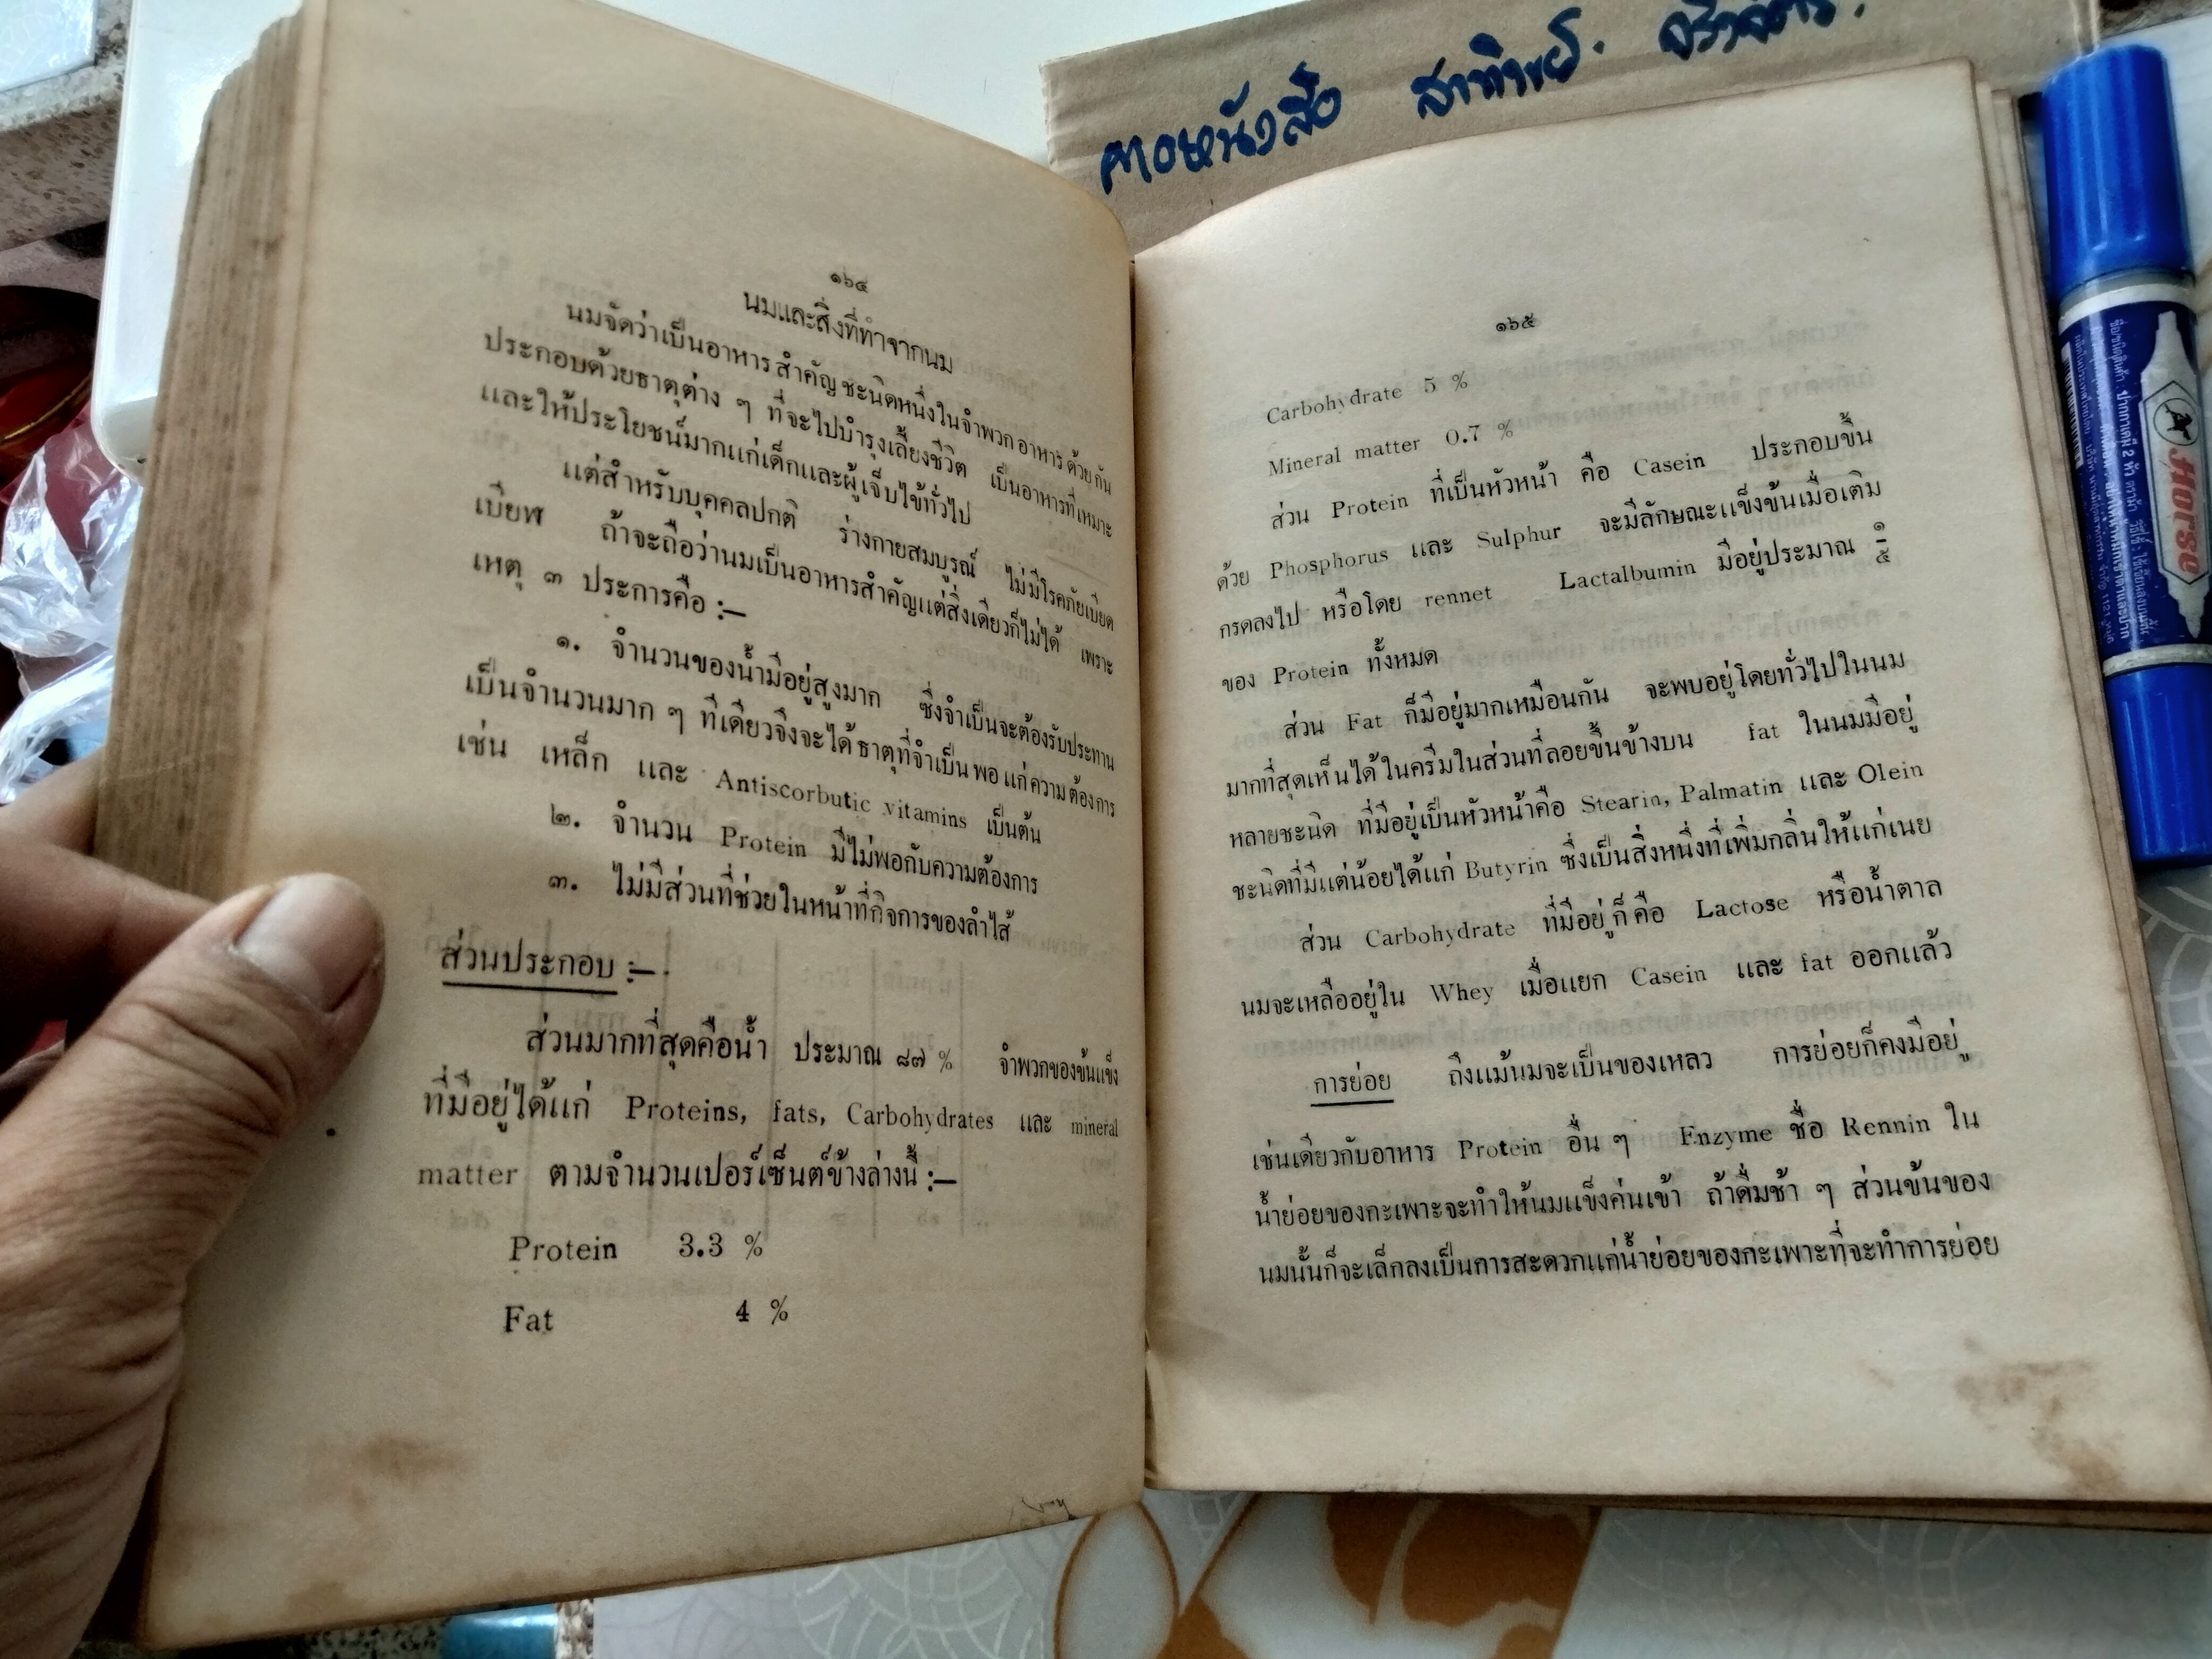 ๑๖๔
นมและสิ่งที่ทำจากนม
นมจัดว่าเป็นอาหารสำคัญชะนิดหนึ่งในจำพวกอาหารด้วยกัน
ประกอบด้วยธาตุต่าง ๆ ที่จะไปบำรุงเลี้ยงชีวิต เป็นอาหารที่เหมาะ
และให้ประโยชน์มากแก่เด็กและผู้เจ็บไข้ทั่วไป
แต่สำหรับบุคคลปกติ ร่างกายสมบูรณ์ ไม่มีโรคภัยเบียด
เบียฬ ถ้าจะถือว่านมเป็นอาหารสำคัญแต่สิ่งเดียวก็ไม่ได้ เพราะ
เหตุ ๓ ประการคือ :—
๑. จำนวนของน้ำมีอยู่สูงมาก ซึ่งจำเป็นจะต้องรับประทาน
เป็นจำนวนมาก ๆ ทีเดียวจึงจะได้ธาตุที่จำเป็นพอแก่ความต้องการ
เช่น เหล็ก และ Antiscorbutic vitamins เป็นต้น
๒. จำนวน Protein มีไม่พอกับความต้องการ
๓. ไม่มีส่วนที่ช่วยในหน้าที่กิจการของลำไส้
ส่วนประกอบ :—
ส่วนมากที่สุดคือน้ำ ประมาณ ๘๗ % จำพวกของข้นแข็ง
ที่มีอยู่ได้แก่ Proteins, fats, Carbohydrates และ mineral
matter ตามจำนวนเปอร์เซ็นต์ข้างล่างนี้ :—
Protein 3.3 %
Fat 4 %
ศาลหนังสือ
๑๖๕
Carbohydrate 5 %
Mineral matter 0.7 %
ส่วน Protein ที่เป็นหัวหน้า คือ Casein ประกอบขึ้น
ด้วย Phosphorus และ Sulphur จะมีลักษณะแข็งข้นเมื่อเติม
กรดลงไป หรือโดย rennet Lactalbumin มีอยู่ประมาณ ๑/๕
ของ Protein ทั้งหมด
ส่วน Fat ก็มีอยู่มากเหมือนกัน จะพบอยู่โดยทั่วไปในนม
มากที่สุดเห็นได้ในครีมในส่วนที่ลอยขึ้นข้างบน fat ในนมมีอยู่
หลายชะนิด ที่มีอยู่เป็นหัวหน้าคือ Stearin, Palmatin และ Olein
ชะนิดที่มีแต่น้อยได้แก่ Butyrin ซึ่งเป็นสิ่งหนึ่งที่เพิ่มกลิ่นให้แก่เนย
ส่วน Carbohydrate ที่มีอยู่ก็คือ Lactose หรือน้ำตาล
นมจะเหลืออยู่ใน Whey เมื่อแยก Casein และ fat ออกแล้ว
การย่อย ถึงแม้นมจะเป็นของเหลว การย่อยก็คงมีอยู่
เช่นเดียวกับอาหาร Protein อื่น ๆ Enzyme ชื่อ Rennin ใน
น้ำย่อยของกะเพาะจะทำให้นมแข็งค่นเข้า ถ้าดื่มช้า ๆ ส่วนข้นของ
นมนั้นก็จะเล็กลงเป็นการสะดวกแก่น้ำย่อยของกะเพาะที่จะทำการย่อย
Horse